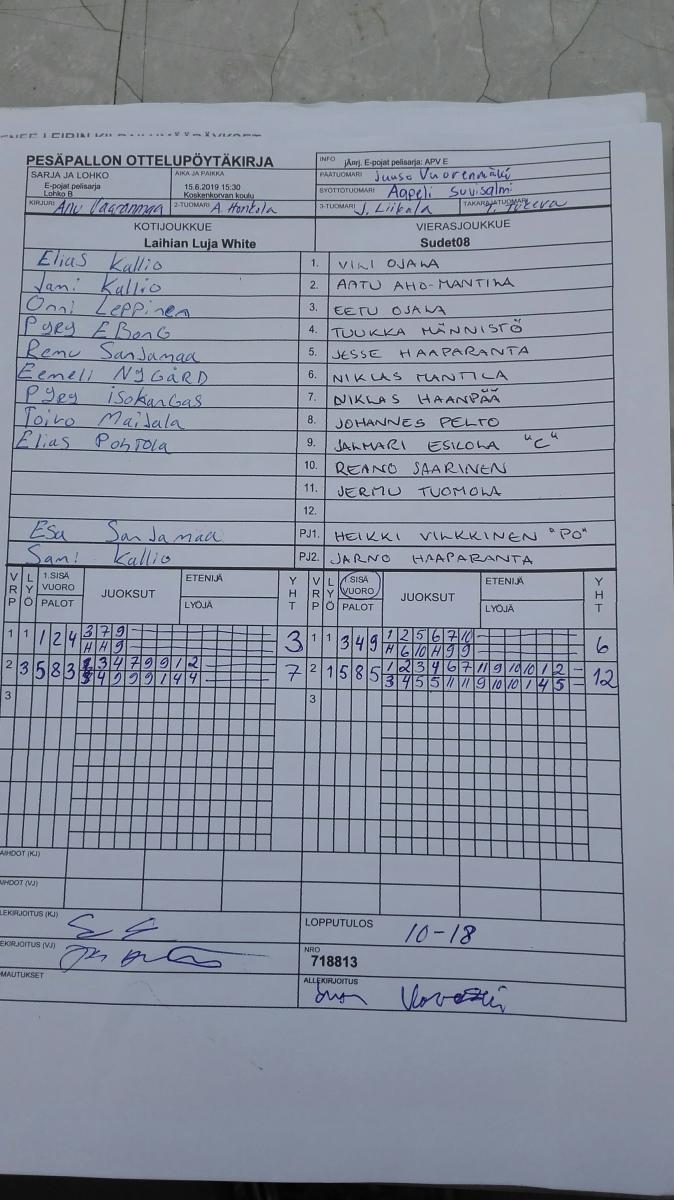 PESÄPALLON OTTELUPÖYTÄKIRJA
INFO jÄrrj. E-pojat pelisarja: APV E
SARJA JA LOHKO
E-pojat pelisarja
Lohko B
AIKA JA PAIKKA
15.6.2019 15:30
Koskenkorvan koulu
PÄÄTUOMARI Juuso Vuorenmäki
SYÖTTÖTUOMARI Aapeli Suvisalmi
KIRJURI Anu Vaaranmaa
2-TUOMARI A. Honkola
3-TUOMARI J. Liikala
TAKARAJATUOMARI
KOTIJOUKKUE
Laihian Luja White
VIERASJOUKKUE
Sudet08
Elias Kallio 1. VILI OJALA
Jami Kallio 2. AATU AHO-MANTILA
Onni Leppinen 3. EETU OJALA
Pyry EBonG 4. TUUKKA MÄNNISTÖ
Remu Sanjamaa 5. JESSE HAAPARANTA
Eemeli NYGÅRD 6. NIKLAS MANTILA
Pyry isokangas 7. NIKLAS HAANPÄÄ
Toivo Maijala 8. JOHANNES PELTO
Elias Pohtola 9. JALMARI ESKOLA "C"
10. REANO SAARINEN
11. JERMU TUOMOLA
12.
Esa Sanjamaa PJ1. HEIKKI VILKKINEN "PO"
Sami Kallio PJ2. JARNO HAAPARANTA
VRP LYÖ 1.SISÄ VUORO PALOT JUOKSUT ETENIJÄ LYÖJÄ YHT VRP LYÖ 1.SISÄ VUORO PALOT JUOKSUT ETENIJÄ LYÖJÄ YHT
1 1 1 2 4 3 7 9 3 1 1 3 4 9 1 2 5 6 7 10 6
H H 9 H 6 10 H 9 9
2 3 5 8 3 3 4 7 9 9 1 2 7 2 1 5 8 5 1 2 3 4 6 7 11 9 10 10 1 2 12
4 9 9 9 1 4 4 3 4 5 5 11 11 9 10 10 1 4 5
3 3
AIHDOT (KJ)
AIHDOT (VJ)
LEKIRJOITUS (KJ)
LOPPUTULOS 10-18
EKIRJOITUS (VJ)
NRO
718813
MAUTUKSET
ALLEKIRJOITUS